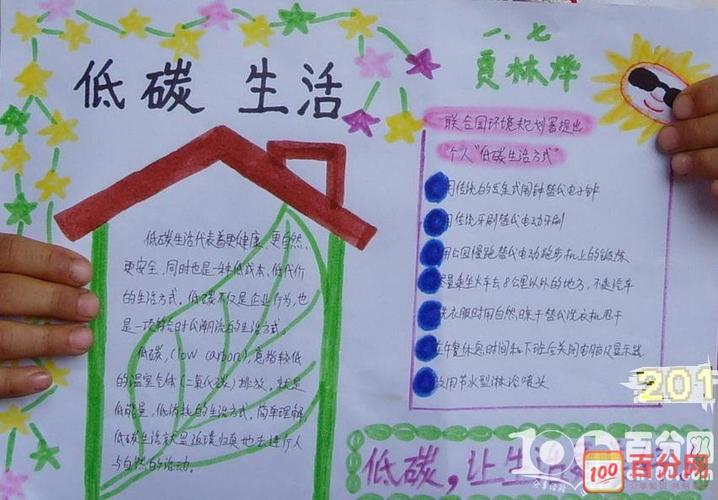 低碳 生活
一、七
夏林烨
低碳生活代表着更健康、更自然、
更安全,同时也是一种低成本、低代价
的生活方式。低碳不仅是企业行为,也
是一项符合时代潮流的生活方式。
低碳,(low carbon),意指较低
的温室气体(二氧化碳)排放,就是
低能量、低消耗的生活方式,简单理解,
低碳生活就是返璞归真地去进行人
与自然的活动。
联合国环境规划署提出
个人"低碳生活方式"
用传统的发条式闹钟替代电子钟
用传统牙刷替代电动牙刷
用公园慢跑替代电动跑步机上的锻炼
尽量乘坐火车去8公里以外的地方,不乘汽车
洗衣服时用自然晾干替代洗衣机甩干
在午餐休息时间和下班后关闭电脑及显示器
改用节水型淋浴喷头
低碳,让生活
201
100
百分网